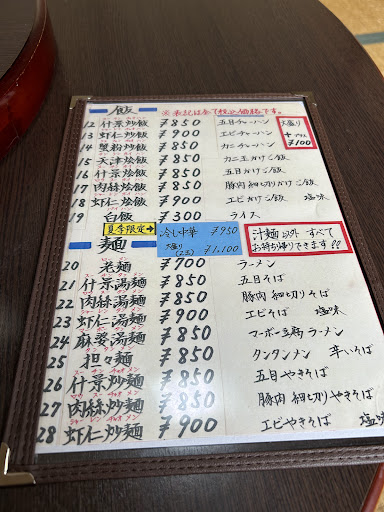 飯 ※表記は全て税込価格です。
12 什景炒飯 ¥850 五目チャーハン
13 虾仁炒飯 ¥900 エビチャーハン
14 蟹粉炒飯 ¥850 カニチャーハン
大盛り
+プラス
¥100
15 天津烩飯 ¥850 カニ玉かけご飯
16 什景烩飯 ¥850 五目かけご飯
17 肉絲烩飯 ¥850 豚肉細切りかけご飯
18 虾仁烩飯 ¥900 エビかけご飯 塩味
19 白飯 ¥300 ライス
夏季限定→ 冷し中華 ¥950
大盛り ¥1,100
汁麺以外すべて
お持ち帰りできます!!
麺
20 老麺 ¥700 ラーメン
21 什景湯麺 ¥850 五目そば
22 肉絲湯麺 ¥850 豚肉細切りそば
23 虾仁湯麺 ¥900 エビそば 塩味
24 麻婆湯麺 ¥850 マーボー豆腐ラーメン
25 担々麺 ¥850 タンタンメン 辛いそば
26 什景炒麺 ¥850 五目やきそば
27 肉絲炒麺 ¥850 豚肉細切りやきそば
28 虾仁炒麺 ¥900 エビやきそば 塩味